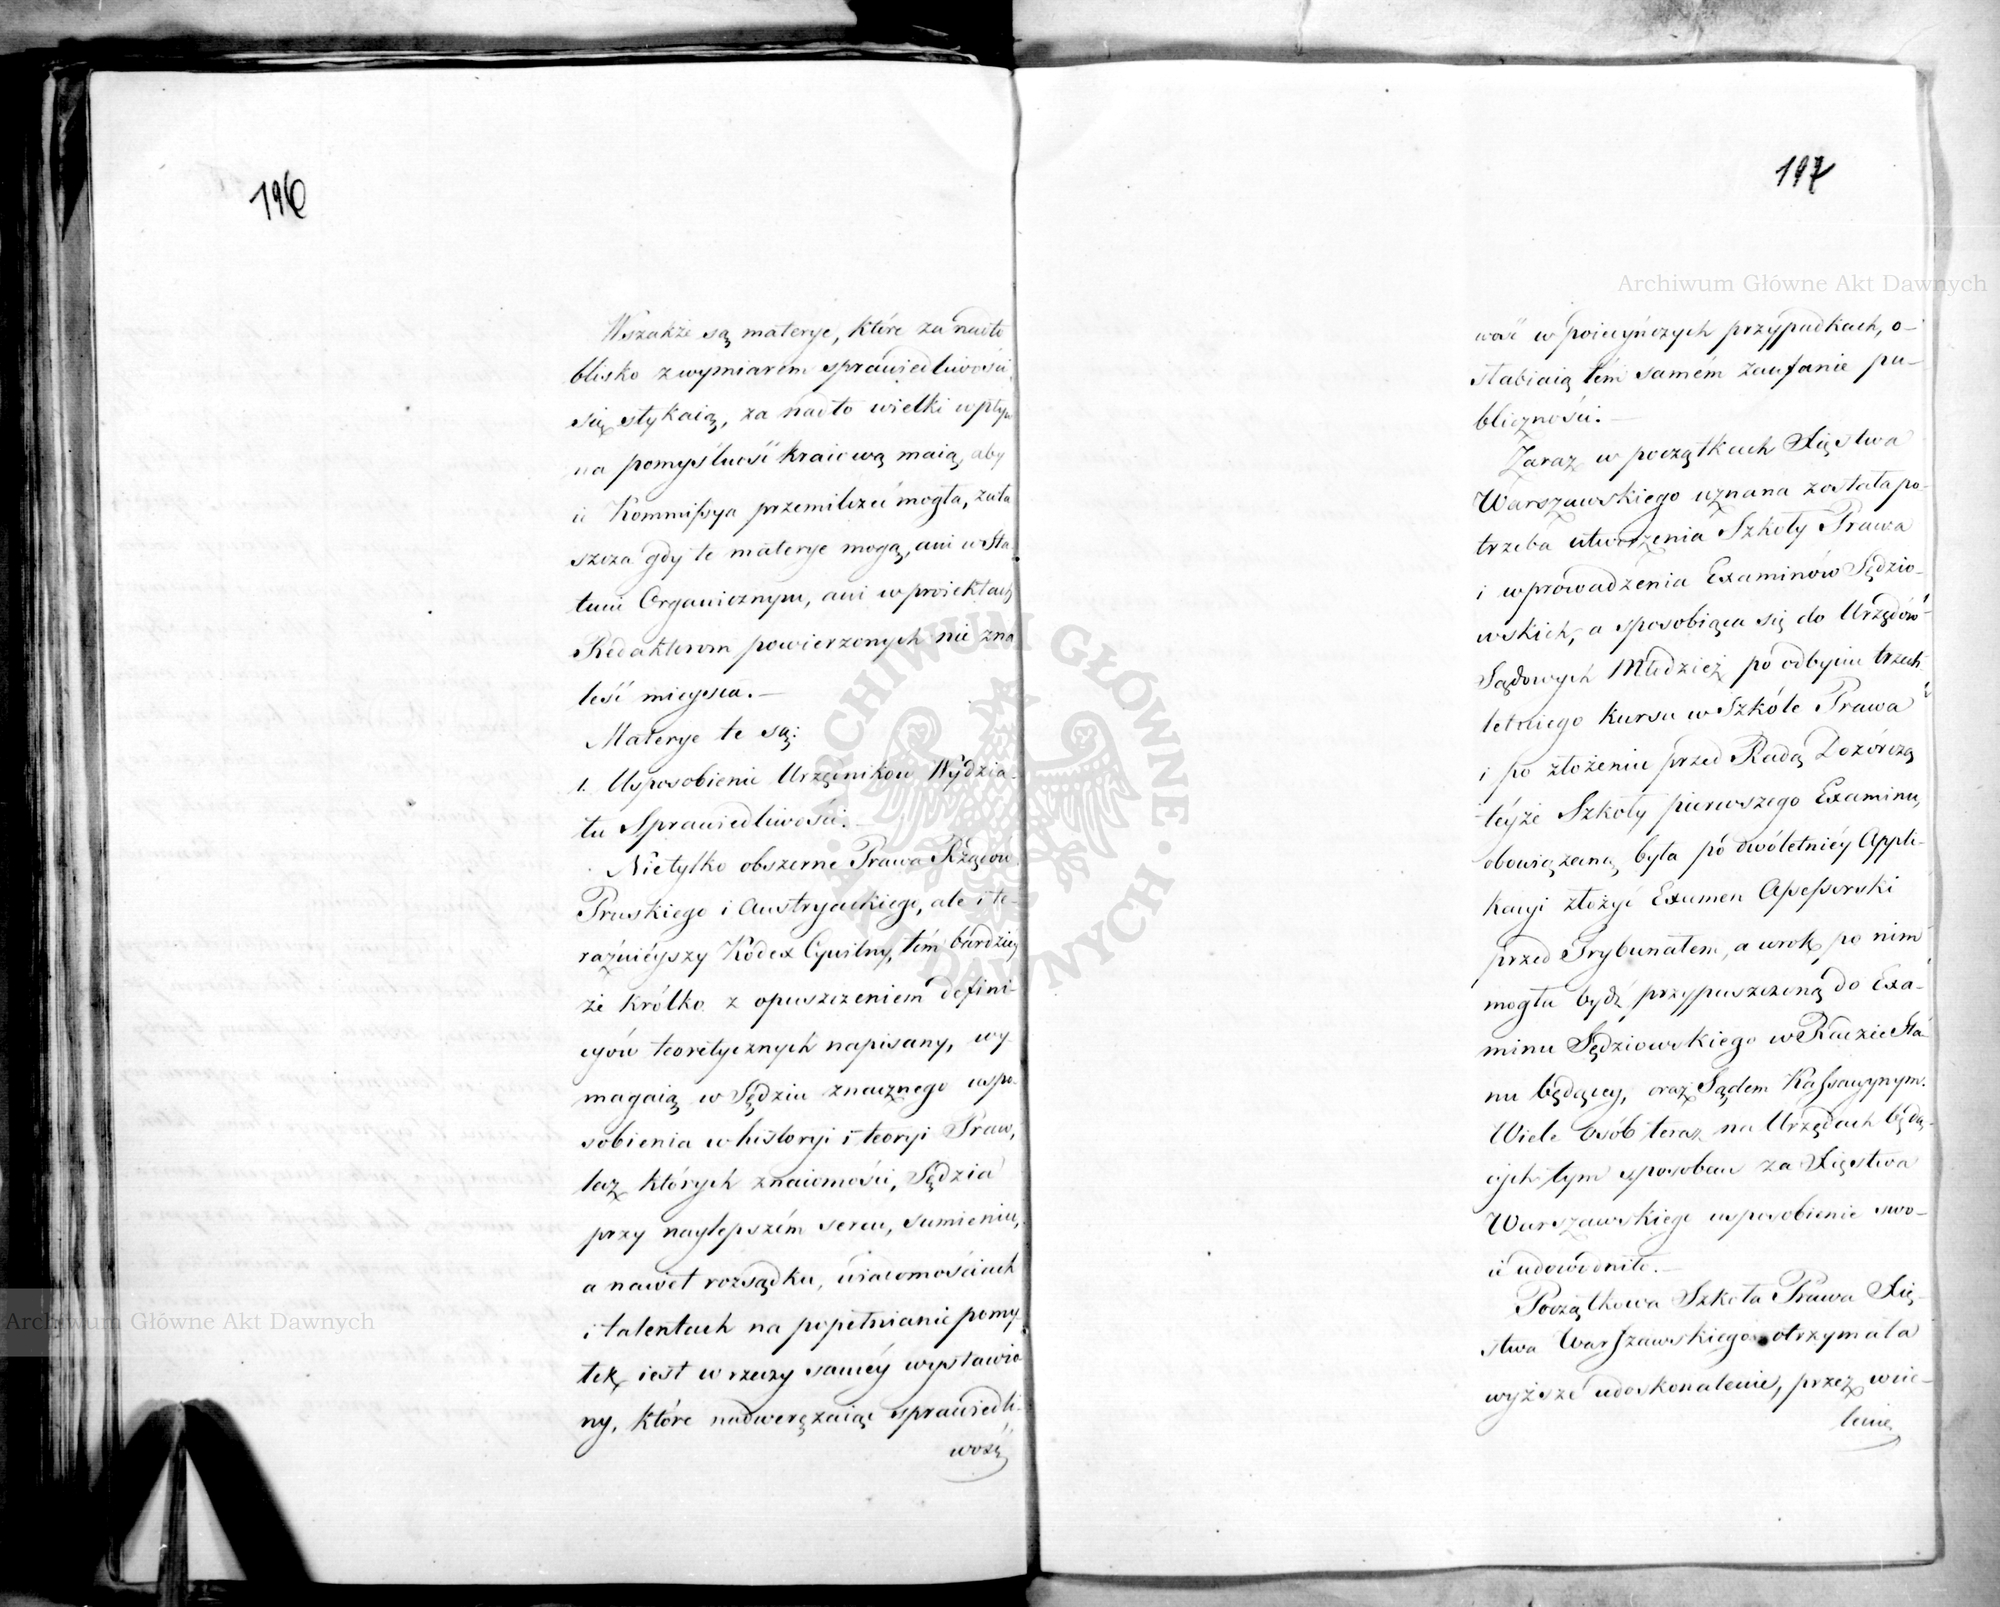 196
Wszakże są materye, które za nadto
blisko z wymiarem sprawiedliwości,
się stykaią, za nadto wielki wpływ
na pomyślność kraiową maią, aby
ie Kommissya przemilczeć mogła, zwła
szcza gdy te materye mogą, ani w Sta
tucie Organicznym, ani w proiektach
Redaktorom powierzonych nie zna
leść mieysca.—
Materye te są:
1. Usposobienie Urzędników Wydzia
łu Sprawiedliwości.—
Nietylko obszerne Prawa Rządów
Pruskiego i Austryackiego, ale i te-
raźnieyszy Kodex Cywilny, tém bardziey
że krótko z opuszczeniem defini-
cyów teoretycznych napisany, wy-
magaią w Sędziu znacznego uspo-
sobienia w historyi i teoryi Praw,
bez których znaiomości, Sędzia
przy naylepszém sercu, sumieniu,
a nawet rozsądku, wiadomościach
i talentach na popełnianie pomy-
łek iest w rzeczy saméy wystawio
ny, które nadwerężaiąc sprawiedli-
wość
197
wość w poiedyńczych przypadkach, o-
słabiaią tém samém zaufanie pu-
bliczności.—
Zaraz w początkach Xięstwa
Warszawskiego uznana została po-
trzeba utworzenia Szkoły Prawa
i wprowadzenia Examinów Sędzio-
wskich, a sposobiąca się do Urzędów
Sądowych Młodzież po odbyciu trzech-
letniego kursu w Szkole Prawa
i po złożeniu przed Radą Dozórczą
téyże Szkoły pierwszego Examinu,
obowiązaną była po dwóletniéy Appli-
kacyi złożyć Examen Assessorski
przed Trybunałem, a w rok po nim
mogła bydź przypuszczoną do Exa-
minu Sędziowskiego w Radzie Sta-
nu będącey, oraz Sądem Kassacyjnym.
Wiele osób teraz na Urzędach będą-
cych tym sposobem za Xięstwa
Warszawskiego usposobienie swo-
ie udowodniło.—
Początkowa Szkoła Prawa Xię-
stwa Warszawskiego otrzymała
wyższe udoskonalenie, przez wcie-
lenie
Archiwum Główne Akt Dawnych
Archiwum Główne Akt Dawnych
ARCHIWUM GŁÓWNE
AKT DAWNYCH